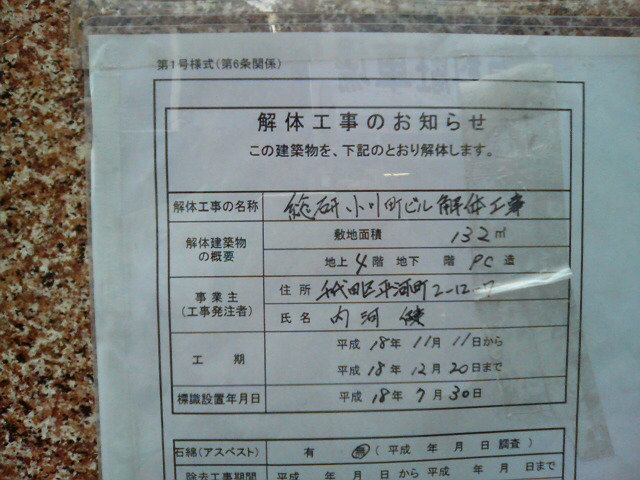 第1号様式(第6条関係)
解体工事のお知らせ
この建築物を、下記のとおり解体します。
解体工事の名称 総研小川町ビル解体工事
解体建築物の概要 敷地面積 132㎡
地上 4 階 地下 階 PC 造
事業主(工事発注者) 住所 千代田区平河町2-12-
氏名 内河 健
工期 平成 18年 11月 11日から
平成 18年 12月 20日まで
標識設置年月日 平成 18年 7月 30日
石綿(アスベスト) 有 無 (平成 年 月 日 調査)
除去工事期間 平成 年 月 日 から 平成 年 月 日まで